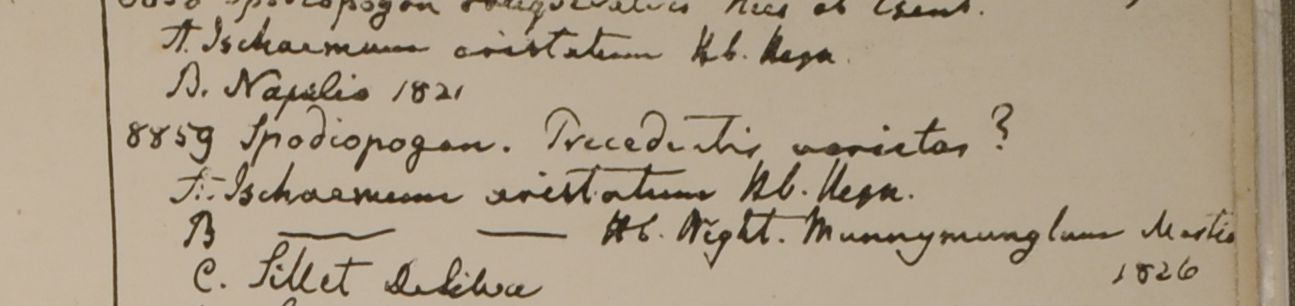 8858 Spodiopogon obliquivalvis Nees ab Esenb.
A. Ischaemum aristatum Hb. Heyn.
B. Napalia 1821
8859 Spodiopogon. Precedentis varietas?
A. Ischaemum aristatum Hb. Heyn.
B — — Hb. Wight. Munnymunglum Martio
1826
C. Sillet De Silva